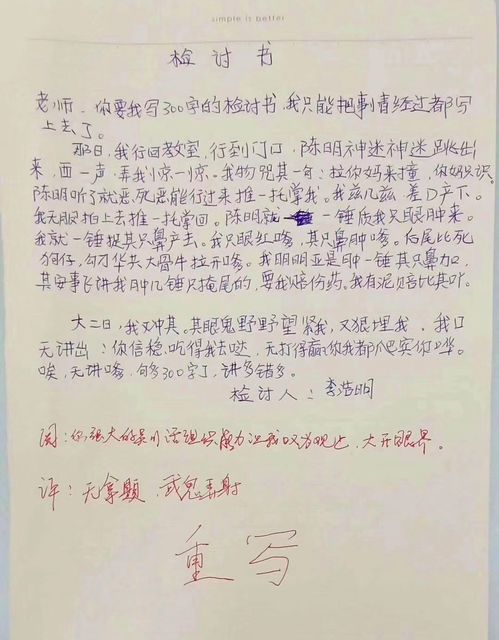 simple is better
检讨书
老师、你要我写300字的检讨书，我只能把事情经过都写
上去了。
那日，我行回教室，行到门口，陈明神迷神迷跳出
来，西一声，弄我惊一惊。我勿咒其一句：拉你妈来撞，你妈识识
陈明听了就恶，死恶能行过来推一托掌我。我兹几兹，差口产下。
我无服拍上去推一托掌回。陈明就一锤质我只眼肿来。
我就一锤捉其只鼻产去。我只眼红嗲，其只鼻肿嗲。后尾比死
狗仔，勾刀华共大骨牛拉开嗲。我明明亚是肿一锤其只鼻加，
其安事飞讲我肿几锤只掩尾的，要我赔份药。我有泥赔比其吖。
大二日，我又冲其，其眼鬼野野望紧我，又狠埋我，我口
无讲出：你信稳吃得我去哒，无打得赢你我都爬实你哗。
唉，无讲嗲，句多300字了，讲多错多。
检讨人：李浩明
阅：你强大的吴川话组织能力让我叹为观止，大开眼界。
评：无拿题，武鬼弄射
重写